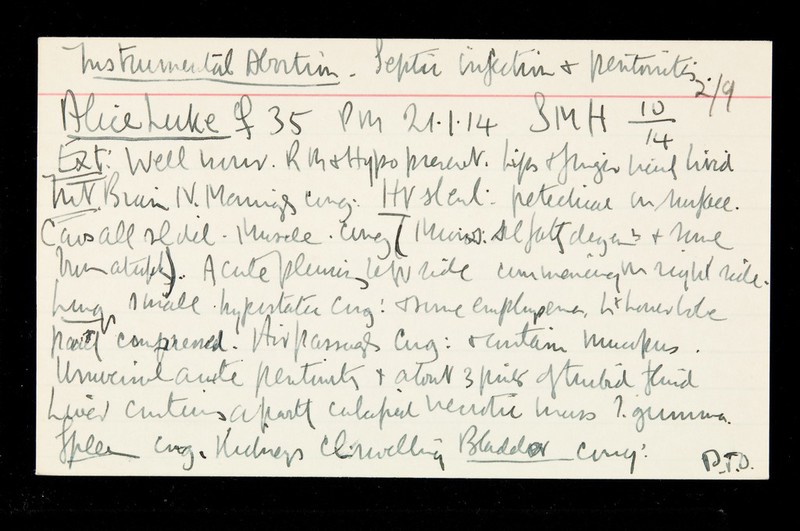 Instrumental Abortion. Septic infection & peritonitis
2/9
Alice Luke ♀ 35 PM 21.1.14 SMH 10/14
Ext: Well nour. RM & Hypo present. Lips & finger nails livid
Int. Brain N. Meninges cong. Ht sl enl: petechiae on surface.
Cavs all sl dil. Muscle. cong (Micros: sl fatty degenn & some
brn atrophy). Acute pleurisy left side commencing on right side.
Lungs small. hypostatic cong: & some emphysema. Lt lower lobe
partly compressed. Air passages cong: & contain mucopus.
Universal acute peritonitis & about 3 pints of turbid fluid
Liver contains a partly calcified necrotic mass ?. gumma.
Spleen cong. Kidneys cl: swelling Bladder cong:
P.T.O.